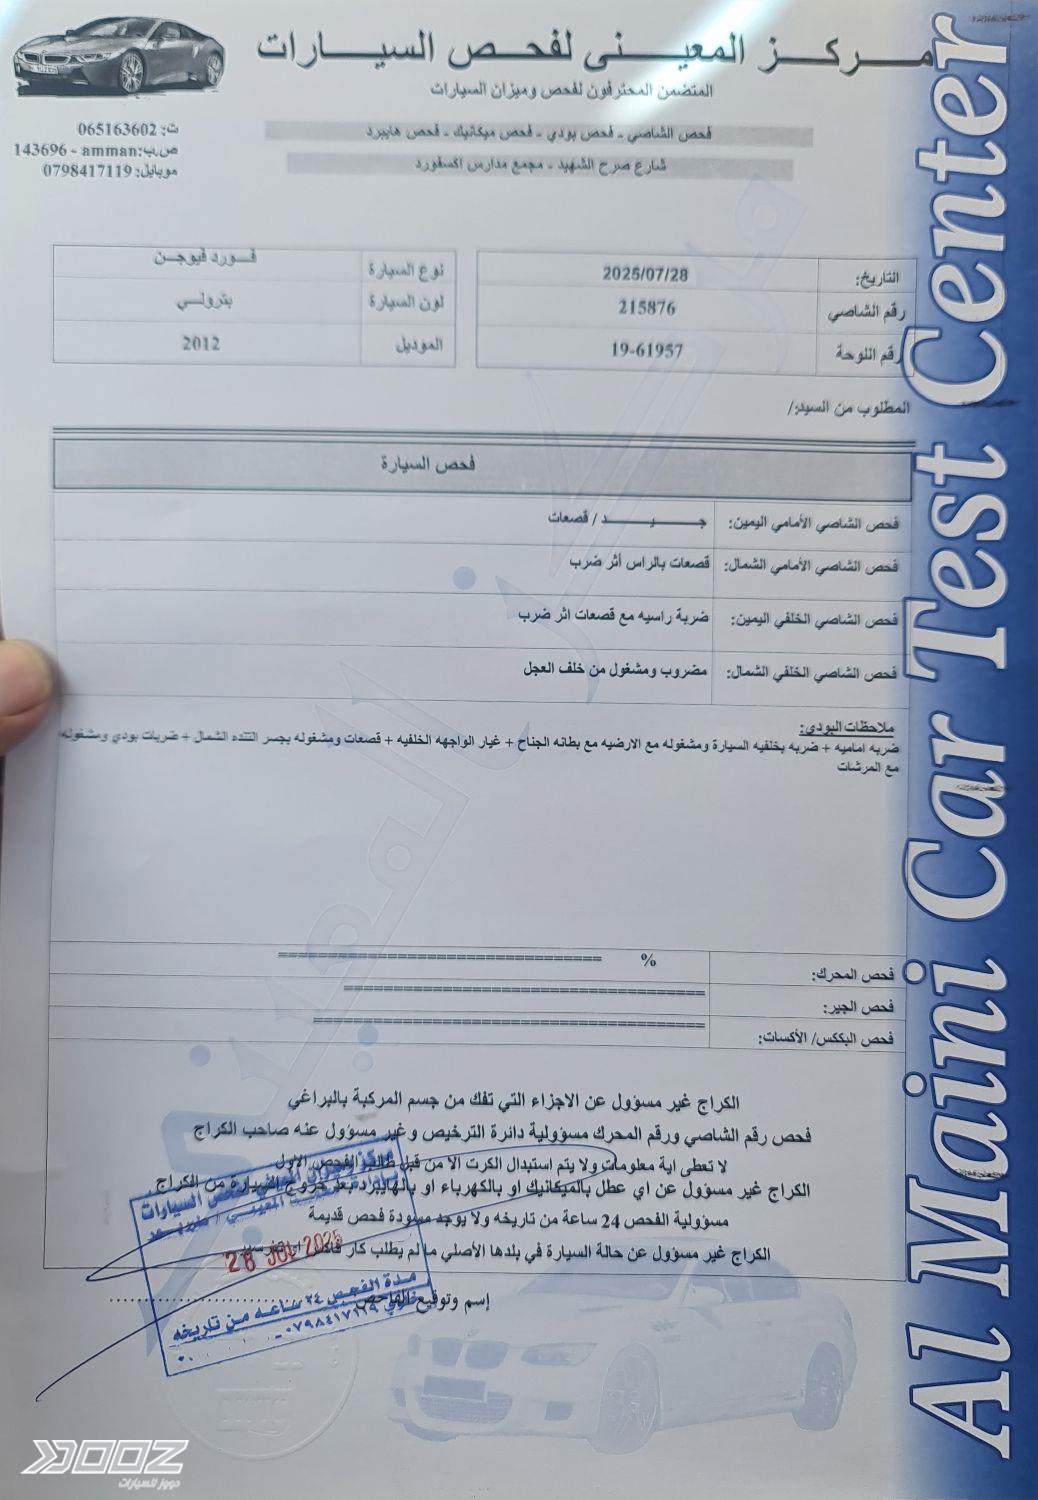 مركز المعيني لفحص السيارات
المتضمن المحترفون لفحص وميزان السيارات
فحص الشاصي - فحص بودي - فحص ميكانيك - فحص هايبرد
شارع صرح الشهيد - مجمع مدارس اكسفورد
ت: 065163602
ص.ب: amman - 143696
موبايل: 0798417119
التاريخ: 2025/07/28
رقم الشاصي 215876
رقم اللوحة 19-61957
نوع السيارة فورد فيوجن
لون السيارة بترولي
الموديل 2012
المطلوب من السيد:/
فحص السيارة
فحص الشاصي الأمامي اليمين: جيد / قصعات
فحص الشاصي الأمامي الشمال: قصعات بالراس أثر ضرب
فحص الشاصي الخلفي اليمين: ضربة راسيه مع قصعات اثر ضرب
فحص الشاصي الخلفي الشمال: مضروب ومشغول من خلف العجل
ملاحظات البودي:
ضربه اماميه + ضربه بخلفيه السيارة ومشغوله مع الارضيه مع بطانه الجناح + غيار الواجهه الخلفيه + قصعات ومشغوله بجسر التنده الشمال + ضربات بودي ومشغوله
مع المرشات
فحص المحرك: % ================================
فحص الجير: ====================================
فحص البككس/ الأكسات: =======================================
الكراج غير مسؤول عن الاجزاء التي تفك من جسم المركبة بالبراغي
فحص رقم الشاصي ورقم المحرك مسؤولية دائرة الترخيص وغير مسؤول عنه صاحب الكراج
لا تعطى اية معلومات ولا يتم استبدال الكرت الا من قبل طالب الفحص الاول
الكراج غير مسؤول عن اي عطل بالميكانيك او بالكهرباء او بالهايبرد بعد خروج السيارة من الكراج
مسؤولية الفحص 24 ساعة من تاريخه ولا يوجد مسودة فحص قديمة
الكراج غير مسؤول عن حالة السيارة في بلدها الأصلي ما لم يطلب كار فاكس
إسم وتوقيع الفاحص
28 JUL 2025
مدة الفحص ٢٤ ساعه من تاريخه
٠٧٩٨٤١٧١١٩
Al Maini Car Test Center
DOOZ
دووز للسيارات